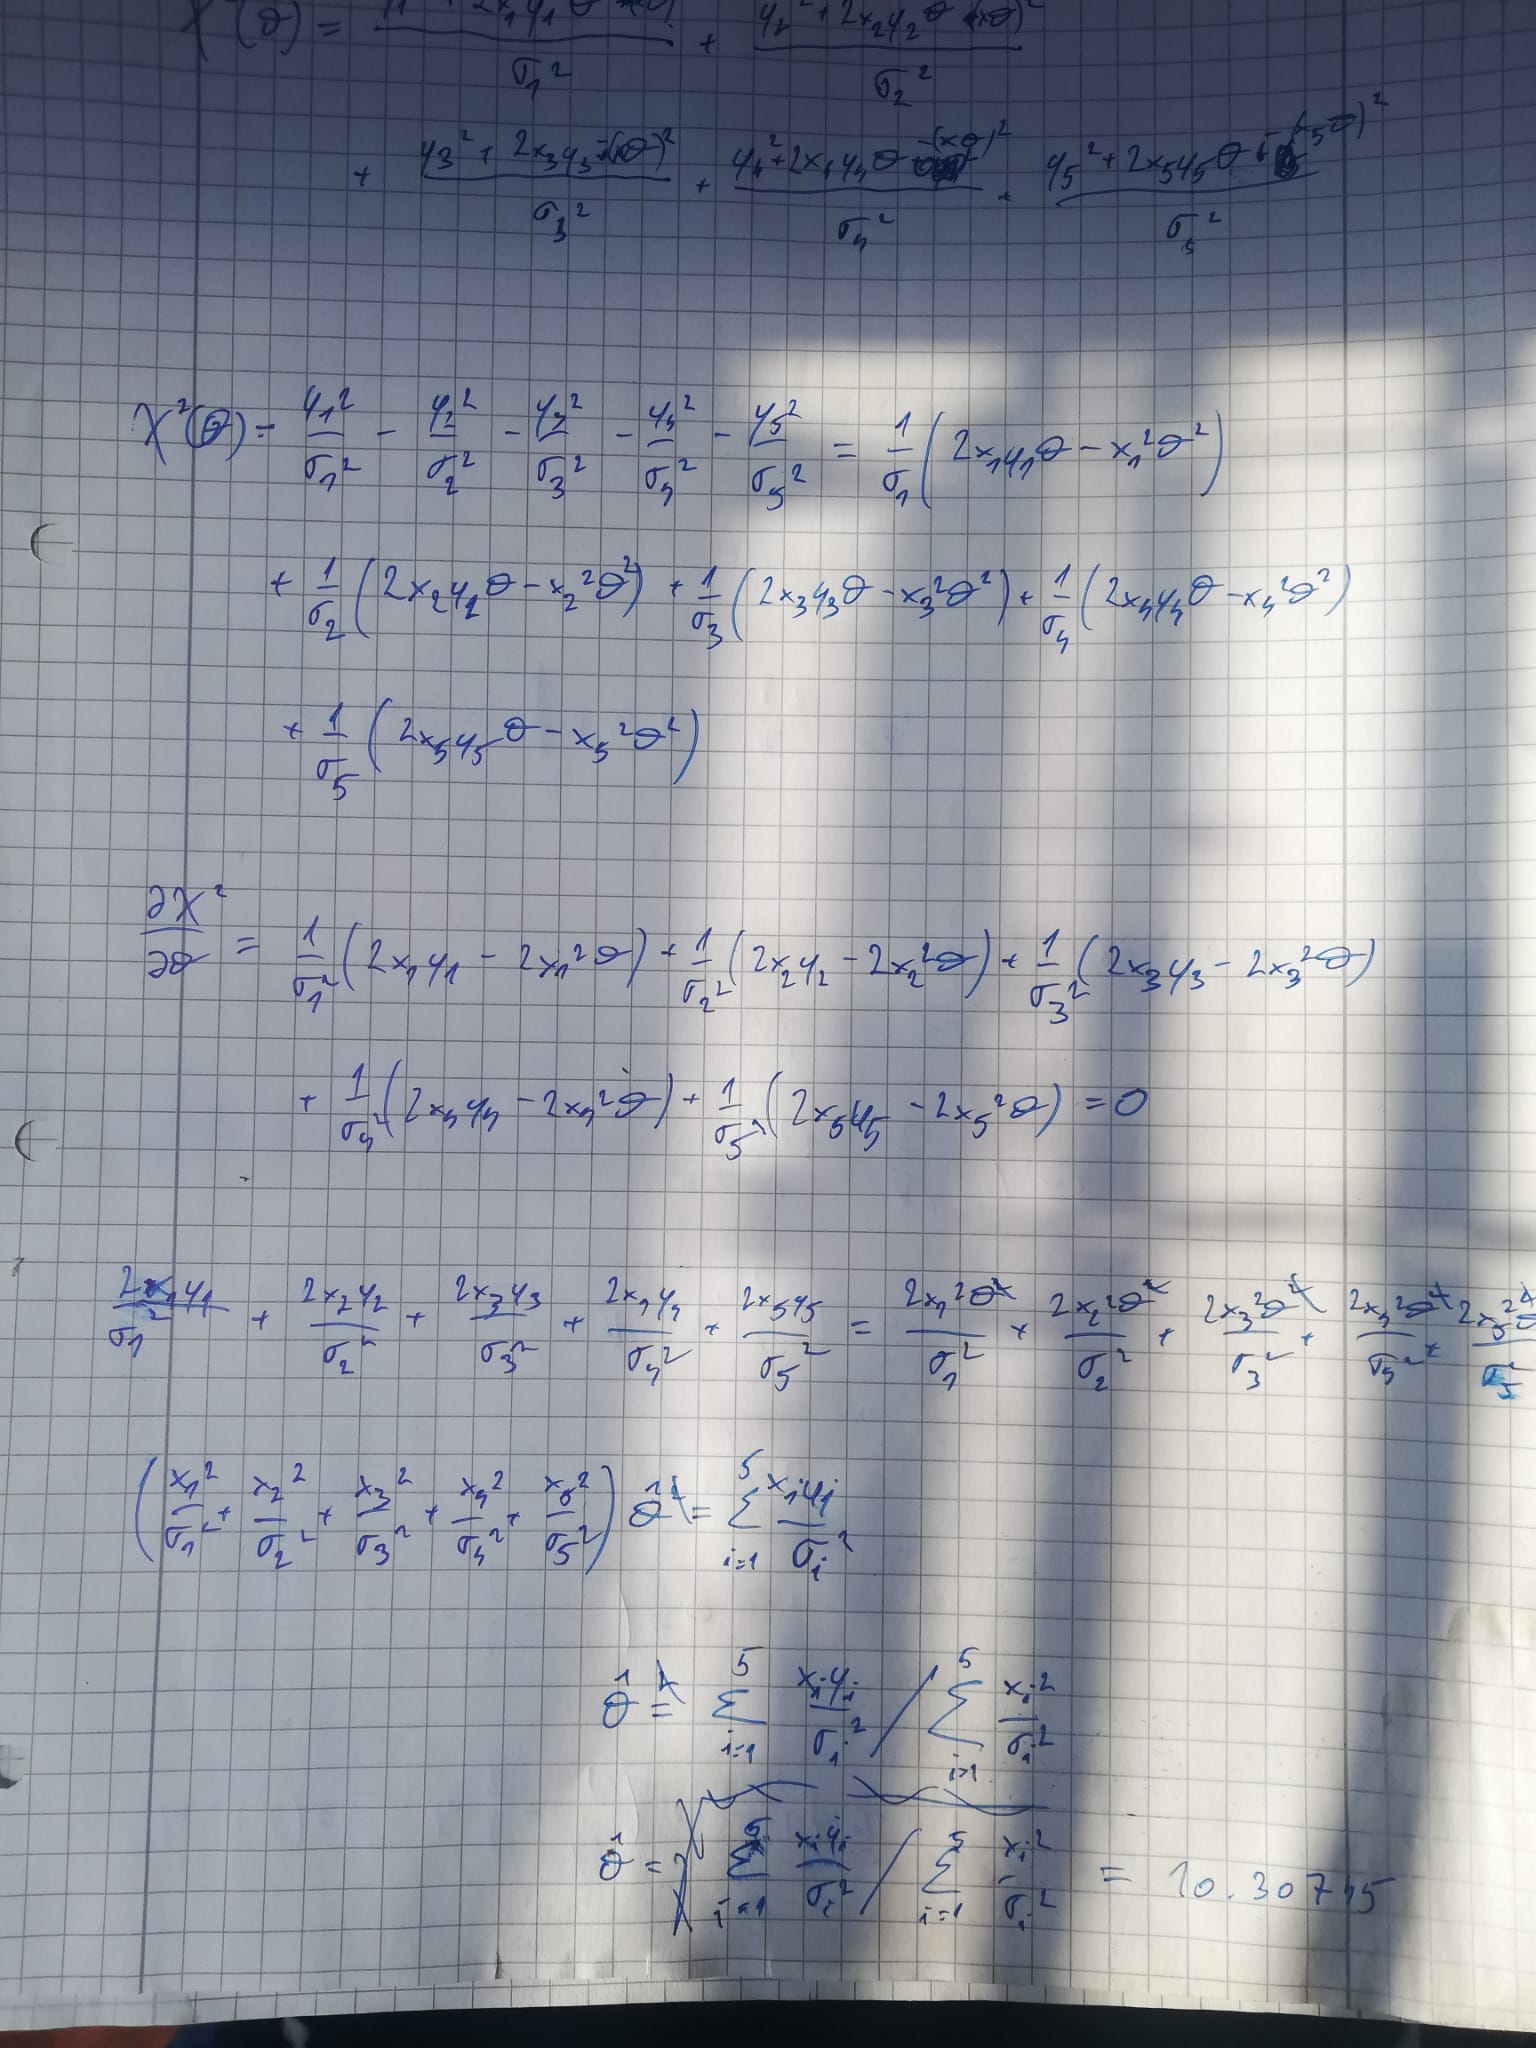 χ²(θ) = (y₁² + 2x₁y₁θ -(xθ)²)/σ₁² + (y₂² + 2x₂y₂θ -(xθ)²)/σ₂²
+ (y₃² + 2x₃y₃ -(xθ)²)/σ₃² + (y₄² + 2x₄y₄θ -(xθ)²)/σ₄² + (y₅² + 2x₅y₅θ -(x₅θ)²)/σ₅²
χ²(θ) - y₁²/σ₁² - y₂²/σ₂² - y₃²/σ₃² - y₄²/σ₄² - y₅²/σ₅² = 1/σ₁ (2x₁y₁θ - x₁²θ²)
+ 1/σ₂ (2x₂y₂θ - x₂²θ²) + 1/σ₃ (2x₃y₃θ - x₃²θ²) + 1/σ₄ (2x₄y₄θ - x₄²θ²)
+ 1/σ₅ (2x₅y₅θ - x₅²θ²)
∂χ²/∂θ = 1/σ₁² (2x₁y₁ - 2x₁²θ) + 1/σ₂² (2x₂y₂ - 2x₂²θ) + 1/σ₃² (2x₃y₃ - 2x₃²θ)
+ 1/σ₄² (2x₄y₄ - 2x₄²θ) + 1/σ₅² (2x₅y₅ - 2x₅²θ) = 0
2x₁y₁/σ₁² + 2x₂y₂/σ₂² + 2x₃y₃/σ₃² + 2x₄y₄/σ₄² + 2x₅y₅/σ₅² = 2x₁²θ/σ₁² + 2x₂²θ/σ₂² + 2x₃²θ/σ₃² + 2x₄²θ/σ₄² + 2x₅²θ/σ₅²
(x₁²/σ₁² + x₂²/σ₂² + x₃²/σ₃² + x₄²/σ₄² + x₅²/σ₅²) θ̂ = Σ_{i=1}^{5} xᵢyᵢ/σᵢ²
θ̂ = Σ_{i=1}^{5} xᵢyᵢ/σᵢ² / Σ_{i=1}^{5} xᵢ²/σᵢ²
θ̂ = Σ_{i=1}^{5} xᵢyᵢ/σᵢ² / Σ_{i=1}^{5} xᵢ²/σᵢ² = 10.30745